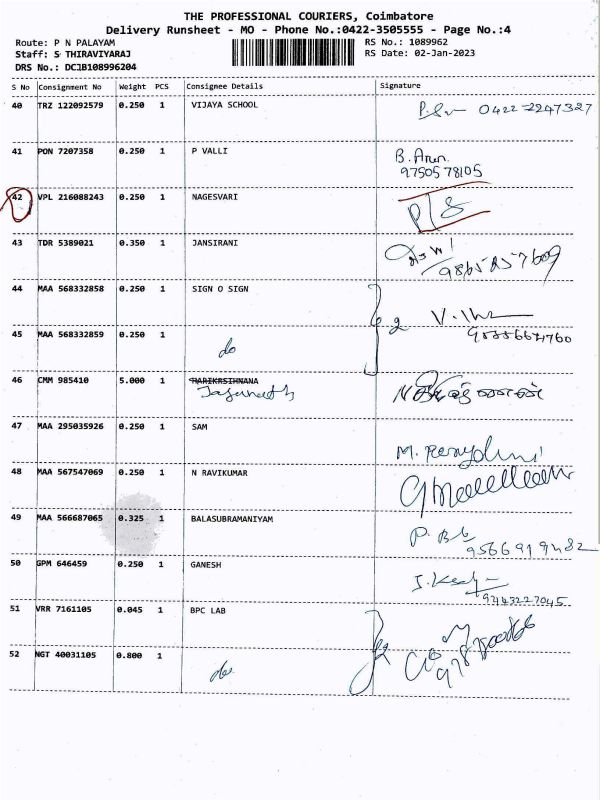 THE PROFESSIONAL COURIERS, Coimbatore
Delivery Runsheet - MO - Phone No.:0422-3505555 - Page No.:4
Route: P N PALAYAM
RS No.: 1089962
Staff: S THIRAVIYARAJ
RS Date: 02-Jan-2023
DRS No.: DC1B108996204
S No Consignment No Weight PCS Consignee Details Signature
40 TRZ 122092579 0.250 1 VIJAYA SCHOOL 0422-2247327
41 PON 7207358 0.250 1 P VALLI B. Arun.
9750578105
42 VPL 216088243 0.250 1 NAGESVARI P/S
43 TDR 5389021 0.350 1 JANSIRANI
44 MAA 568332858 0.250 1 SIGN O SIGN
45 MAA 568332859 0.250 1 do 2
46 CMM 985410 5.000 1 HARIKRSIHNANA
47 MAA 295035926 0.250 1 SAM
48 MAA 567547069 0.250 1 N RAVIKUMAR
49 MAA 566687065 0.325 1 BALASUBRAMANIYAM
9566919482
50 GPM 646459 0.250 1 GANESH
9443227045
51 VRR 7161105 0.045 1 BPC LAB
52 NGT 40031105 0.800 1 do 2